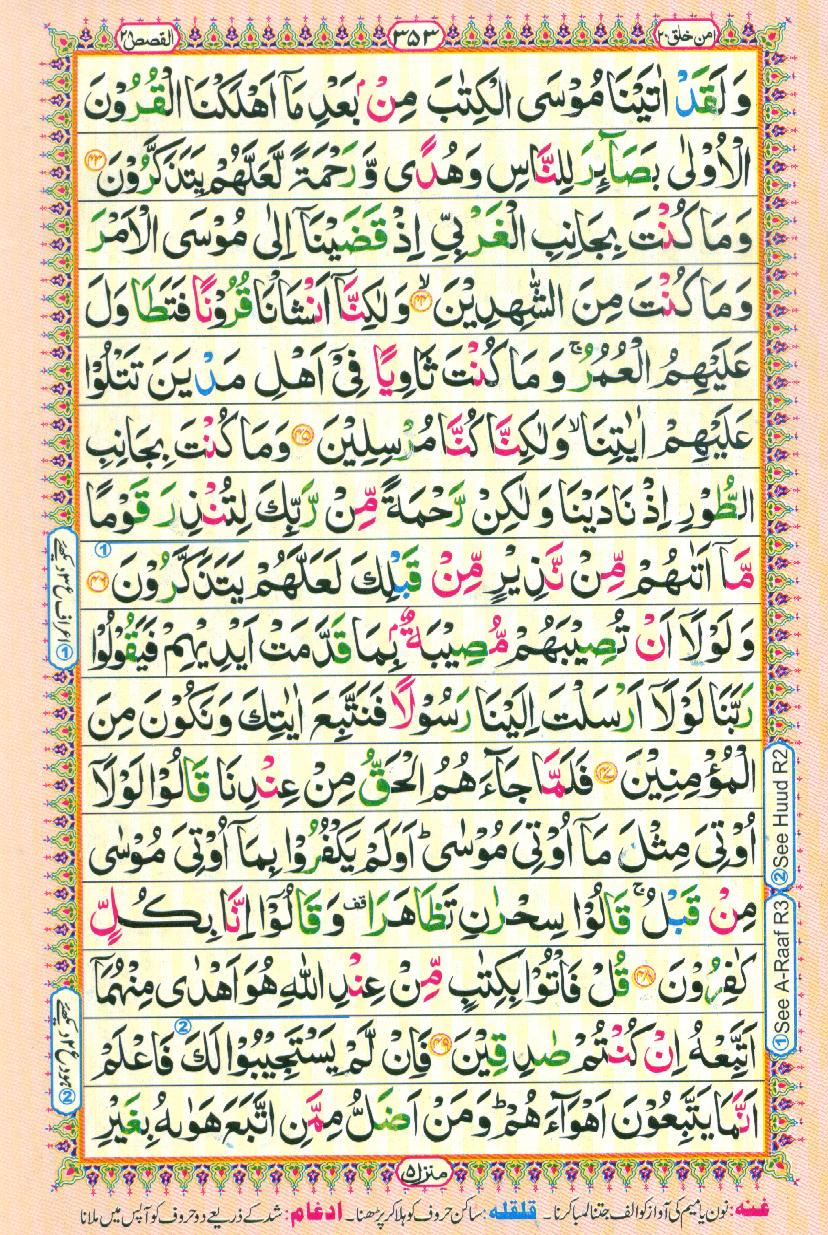 امن خلق ٢٠
٣٥٣
القصص ٢٨
وَلَقَدْ اٰتَیْنَا مُوْسَی الْکِتٰبَ مِنْۢ بَعْدِ مَاۤ اَهْلَکْنَا الْقُرُوْنَ
الْاُوْلٰی بَصَآئِرَ لِلنَّاسِ وَهُدًی وَّرَحْمَةً لَّعَلَّهُمْ یَتَذَکَّرُوْنَ ﴿٤٣﴾
وَمَا کُنْتَ بِجَانِبِ الْغَرْبِیِّ اِذْ قَضَیْنَاۤ اِلٰی مُوْسَی الْاَمْرَ
وَمَا کُنْتَ مِنَ الشّٰهِدِیْنَ ۙ﴿٤٤﴾ وَلٰکِنَّاۤ اَنْشَاْنَا قُرُوْنًا فَتَطَاوَلَ
عَلَیْهِمُ الْعُمُرُ ۚ وَمَا کُنْتَ ثَاوِیًا فِیْۤ اَهْلِ مَدْیَنَ تَتْلُوْا
عَلَیْهِمْ اٰیٰتِنَا ۙ وَلٰکِنَّا کُنَّا مُرْسِلِیْنَ ﴿٤٥﴾ وَمَا کُنْتَ بِجَانِبِ
الطُّوْرِ اِذْ نَادَیْنَا وَلٰکِنْ رَّحْمَةً مِّنْ رَّبِّکَ لِتُنْذِرَ قَوْمًا
مَّاۤ اَتٰىهُمْ مِّنْ نَّذِیْرٍ مِّنْ قَبْلِکَ لَعَلَّهُمْ یَتَذَکَّرُوْنَ ﴿٤٦﴾
وَلَوْلَاۤ اَنْ تُصِیْبَهُمْ مُّصِیْبَةٌۢ بِمَا قَدَّمَتْ اَیْدِیْهِمْ فَیَقُوْلُوْا
رَبَّنَا لَوْلَاۤ اَرْسَلْتَ اِلَیْنَا رَسُوْلًا فَنَتَّبِعَ اٰیٰتِکَ وَنَکُوْنَ مِنَ
الْمُؤْمِنِیْنَ ﴿٤٧﴾ فَلَمَّا جَآءَهُمُ الْحَقُّ مِنْ عِنْدِنَا قَالُوْا لَوْلَاۤ
اُوْتِیَ مِثْلَ مَاۤ اُوْتِیَ مُوْسٰی ؕ اَوَلَمْ یَکْفُرُوْا بِمَاۤ اُوْتِیَ مُوْسٰی
مِنْ قَبْلُ ۚ قَالُوْا سِحْرٰنِ تَظَاهَرَا قف وَقَالُوْۤا اِنَّا بِکُلٍّ
کٰفِرُوْنَ ﴿٤٨﴾ قُلْ فَاْتُوْا بِکِتٰبٍ مِّنْ عِنْدِ اللّٰهِ هُوَ اَهْدٰی مِنْهُمَاۤ
اَتَّبِعْهُ اِنْ کُنْتُمْ صٰدِقِیْنَ ﴿٤٩﴾ فَاِنْ لَّمْ یَسْتَجِیْبُوْا لَکَ فَاعْلَمْ
اَنَّمَا یَتَّبِعُوْنَ اَهْوَآءَهُمْ ؕ وَمَنْ اَضَلُّ مِمَّنِ اتَّبَعَ هَوٰىهُ بِغَیْرِ
① اعراف ع ٣ دیکھیے
② ہود ع ٢ دیکھیے
② See Huud R2
① See A-Raaf R3
منزل ٥
غنہ: نون یا میم کی آواز کو الف جتنا لمبا کرنا۔ قلقلہ: ساکن حروف کو ہلا کر پڑھنا۔ ادغام: شد کے ذریعے دو حروف کو آپس میں ملانا